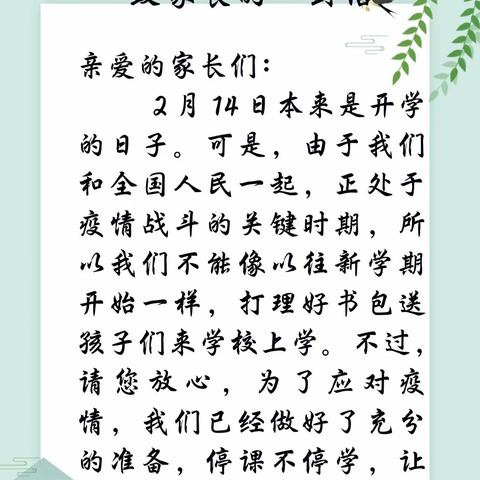 致家长的一封信
亲爱的家长们：
2月14日本来是开学
的日子。可是，由于我们
和全国人民一起，正处于
疫情战斗的关键时期，所
以我们不能像以往新学期
开始一样，打理好书包送
孩子们来学校上学。不过，
请您放心，为了应对疫
情，我们已经做好了充分
的准备，停课不停学，让